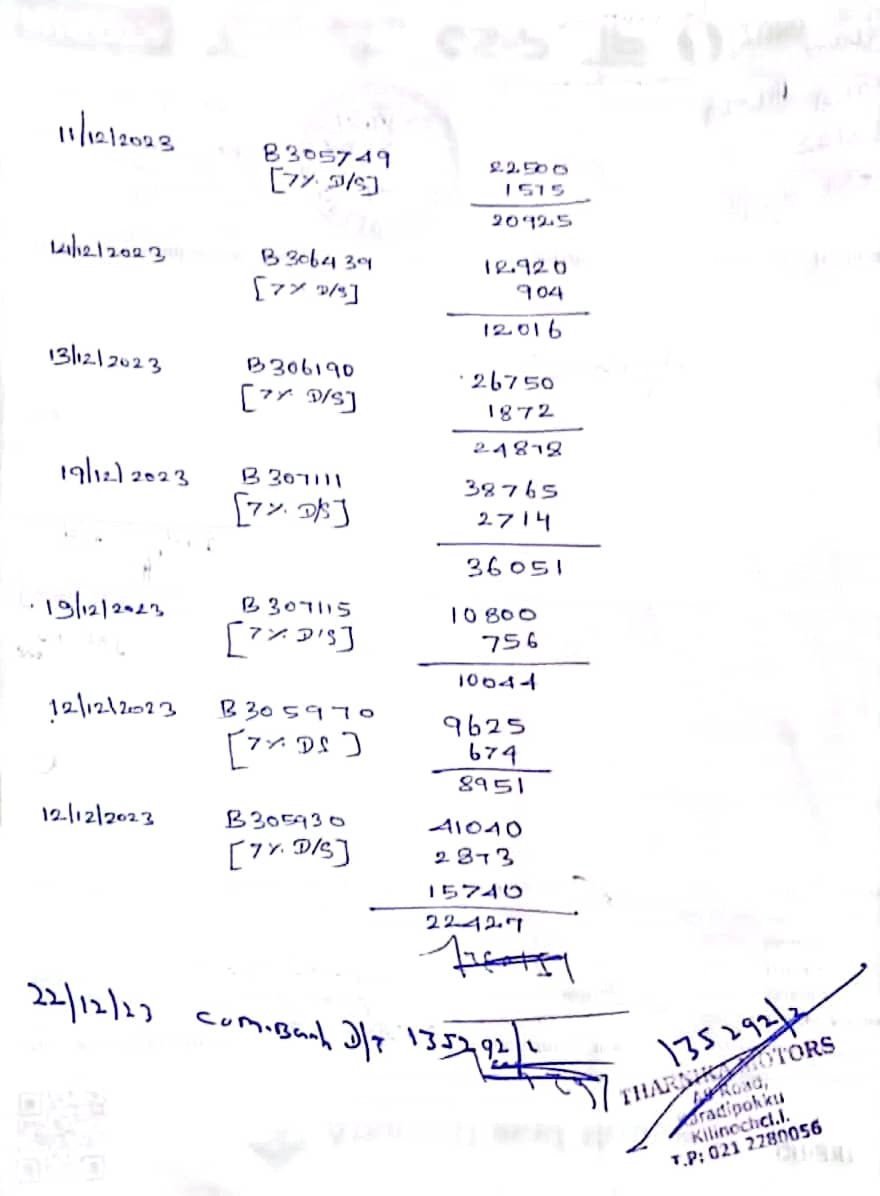 11/12/2023 B305749 22500
[7% D/S] 1575
20925
14/12/2023 B306439 12920
[7% D/S] 904
12016
13/12/2023 B306190 26750
[7% D/S] 1872
24878
19/12/2023 B307111 38765
[7% D/S] 2714
36051
19/12/2023 B307115 10800
[7% D/S] 756
10044
12/12/2023 B305970 9625
[7% DS] 674
8951
12/12/2023 B305930 41040
[7% D/S] 2873
15740
22427
22/12/23 Com.Bank D/T 135292/
135292/
THARNIKA MOTORS
Road,
Kilinochchi.
T.P: 021 2280056